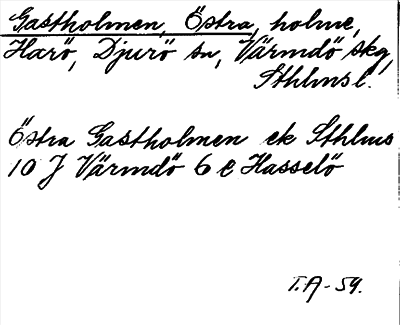 Gastholmen, Östra, holme,
Harö, Djurö sn, Värmdö skg,
Sthlms l.
Östra Gastholmen ek Sthlms
10 J Värmdö 6 e Hasselö
T.A-54.